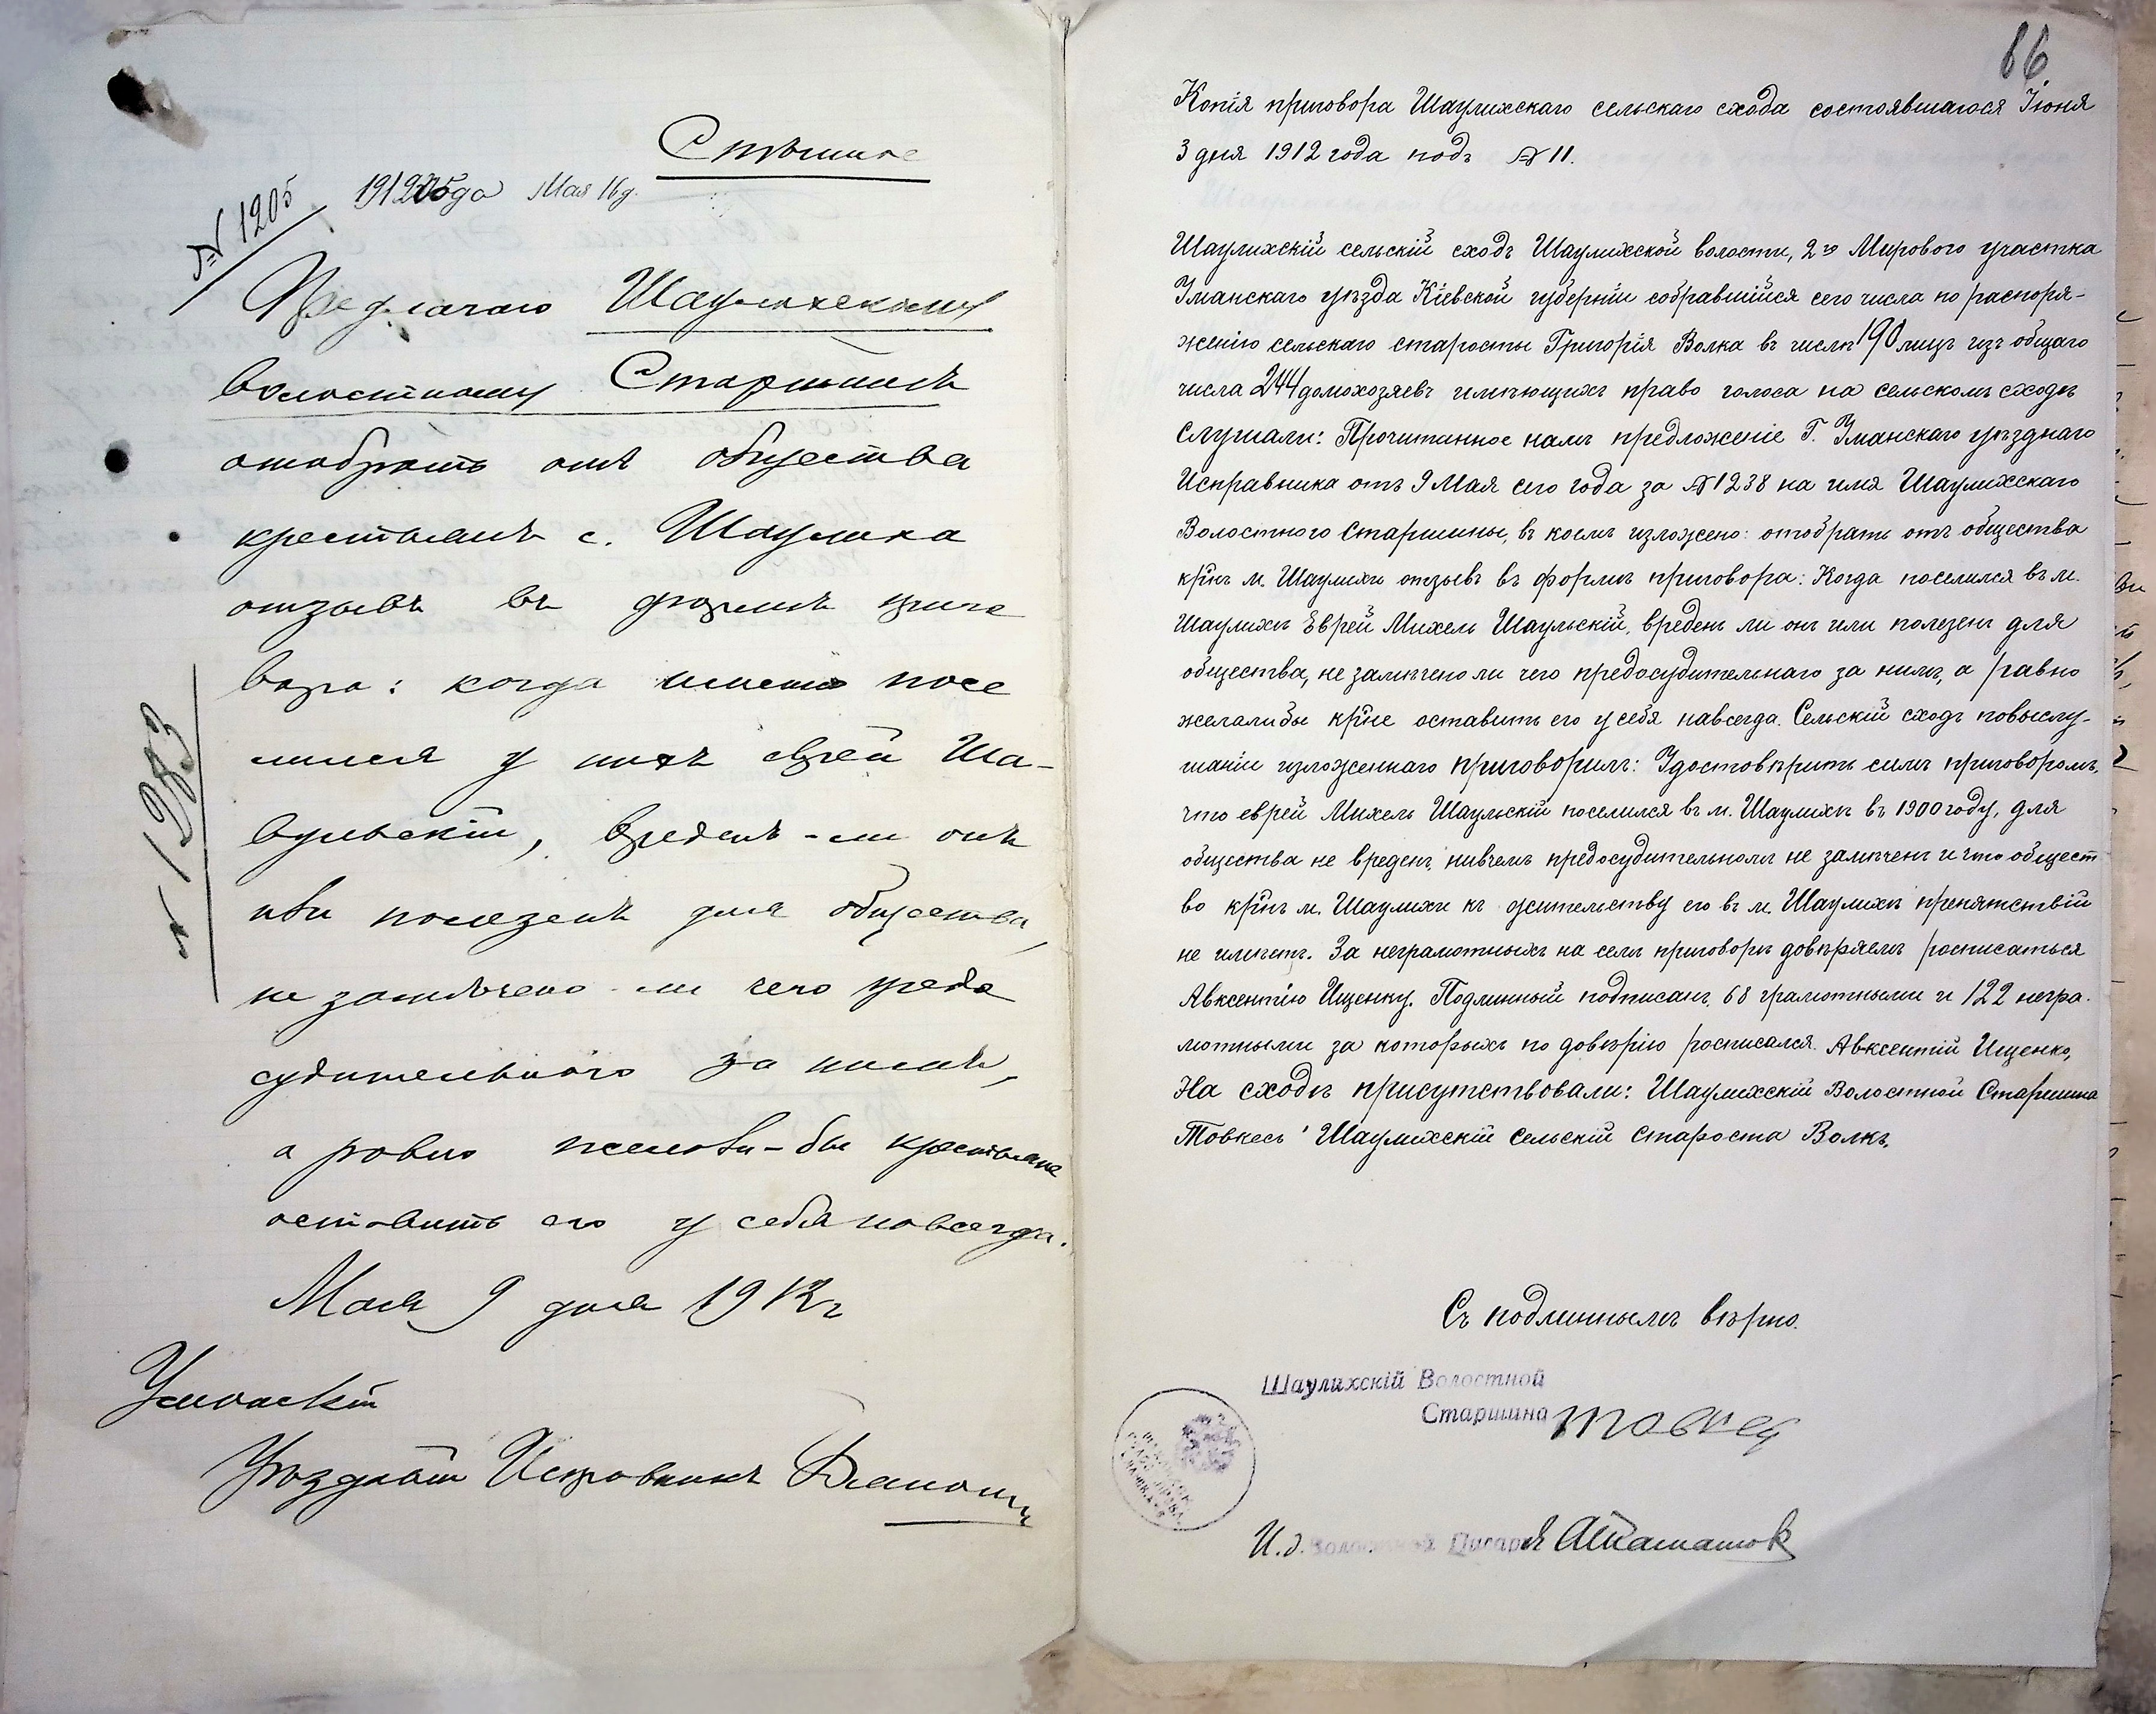 Спѣшно
№ 1205
1912 года Мая 16 д.
Предлагаю Шаулихскому
Волостному Старшинѣ
отобрать отъ общества
крестьянъ с. Шаулиха
отзывъ въ формѣ приго
вора: когда именно посе
лился у нихъ еврей Ша-
вульскій, вреденъ-ли онъ
или полезенъ для общества,
не замѣчено-ли чего предо
судительнаго за нимъ,
а равно желали-бы крестьяне
оставить его у себя навсегда.
Мая 9 дня 1912 г
Уманскій
Уѣздный Исправникъ
66.
Копія приговора Шаулихскаго сельскаго схода состоявшагося Іюня
3 дня 1912 года подъ № 11.
Шаулихскій сельскій сходъ Шаулихской волости, 2го Мирового участка
Уманскаго уѣзда Кіевской губерніи собравшійся сего числа по распоря-
женію сельскаго старосты Григорія Волка въ числѣ 190 лицъ изъ общаго
числа 244 домохозяевъ имѣющихъ право голоса на сельскомъ сходѣ
Слушали: Прочитанное намъ предложеніе Г. Уманскаго уѣзднаго
Исправника отъ 9 Мая сего года за № 1238 на имя Шаулихскаго
Волостного Старшины, въ коемъ изложено: отобрать отъ общества
кр̃нъ м. Шаулихи отзывъ въ формѣ приговора: Когда поселился въ м.
Шаулихѣ Еврей Михель Шаульскій, вреденъ ли онъ или полезенъ для
общества, не замѣчено ли чего предосудительнаго за нимъ, а равно
желали бы кр̃не оставить его у себя навсегда. Сельскій сходъ по выслу-
шаніи изложеннаго приговорилъ: Удостовѣрить симъ приговоромъ,
что еврей Михель Шаульскій поселился въ м. Шаулихѣ въ 1900 году, для
общества не вреденъ, ни въ чемъ предосудительномъ не замѣченъ и что общест
во кр̃нъ м. Шаулихи къ жительству его въ м. Шаулихѣ препятствій
не имѣетъ. За неграмотныхъ на семъ приговорѣ довѣряемъ росписаться
Авксентію Ищенку. Подлинный подписанъ, 68 грамотными и 122 негра-
мотными за которыхъ по довѣрію росписался Авксентій Ищенко,
На сходѣ присутствовали: Шаулихскій Волостной Старшина
Товкесъ Шаулихскій Сельскій Староста Волкъ.
Съ подлиннымъ вѣрно.
Шаулихскій Волостной
Старшина Товкес
И. д. Волостной Писаря